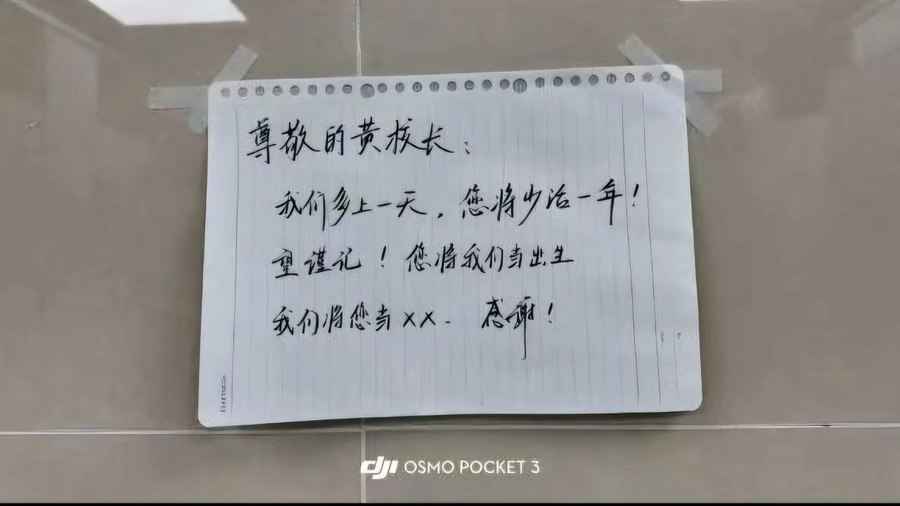 尊敬的黄校长：
我们多上一天，您将少活一年！
望谨记！您将我们当出生
我们将您当××. 感谢！
dji OSMO POCKET 3